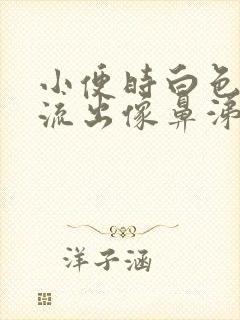 小便时白色
流出像鼻涕
洋子涵